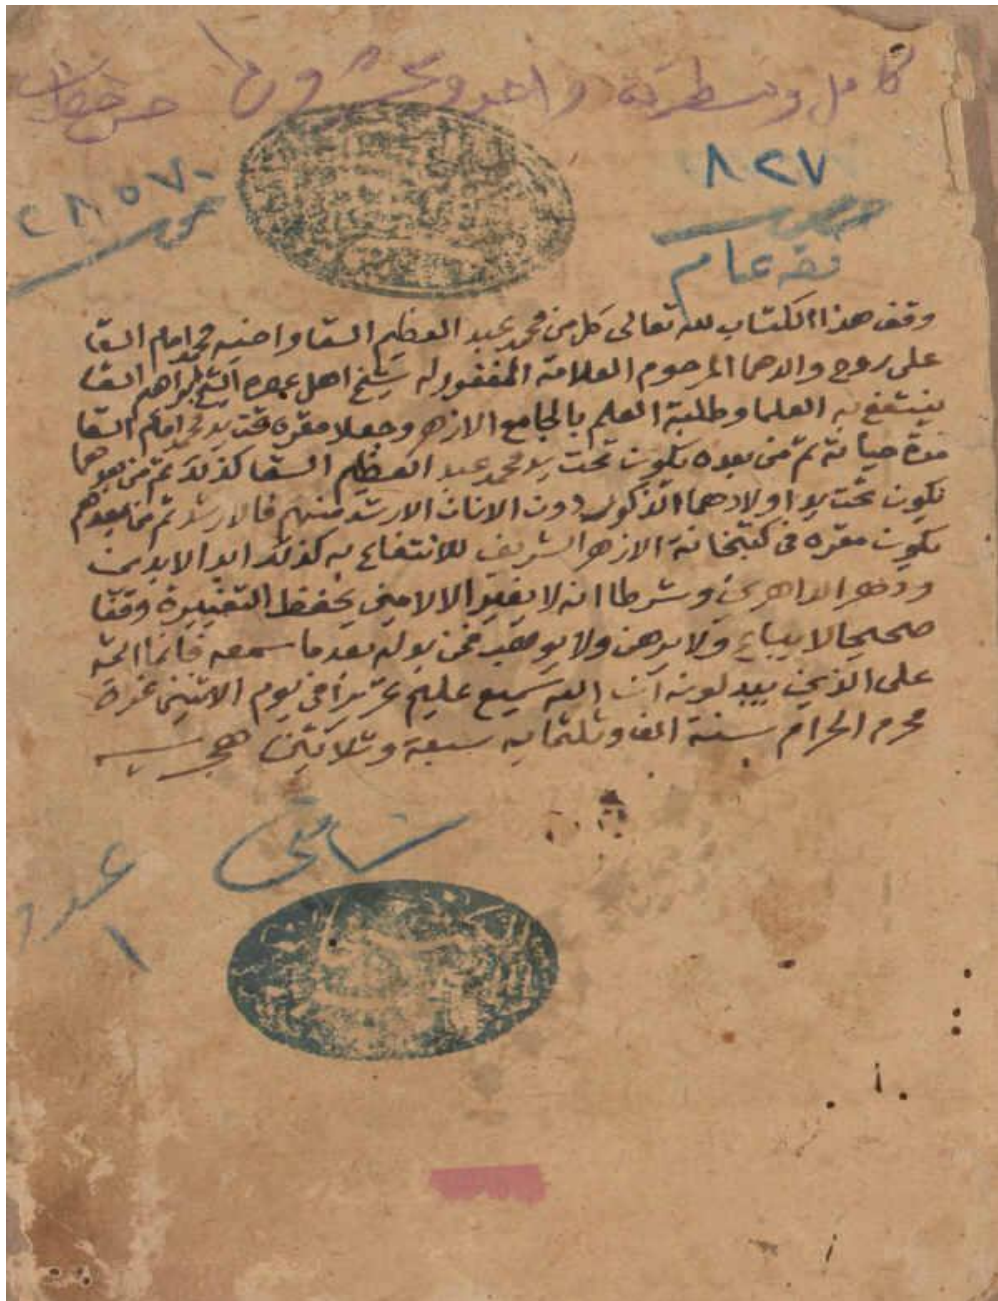 كامل ومسطرته واحد وعشرون
٨٢٧
٢٨٥٧٠
فقه عام
وقف هذا الكتاب لله تعالى كل من محمد عبد العظيم السقا واخيه محمد امام السقا
على روح والدهما المرحوم العلامة المغفور له شيخ اهل عصره الشيخ ابراهيم السقا
لينتفع به العلما وطلبة العلم بالجامع الازهر وجعلا مقره تحت يد محمد امام السقا
مدة حياته ثم من بعده يكون تحت يد محمد عبد العظيم السقا كذلك ثم من بعدهما
يكون تحت يد اولادهما الذكور دون الاناث الارشد منهم فالارشد ثم من بعدهم
يكون مقره في كتبخانة الازهر الشريف للانتفاع به كذلك ابد الابدين
ودهر الداهرين وشرطا انه لا يغير الا لامين يحفظ التغييره وقفا
صحيحا لا يباع ولا يرهن ولا يوهب فمن بدله بعد ما سمعه فانما اثمه
على الذين يبدلونه ان الله سميع عليم تحريرا في يوم الاثنين غرة
محرم الحرام سنة الف وثلثمايه سبعة وثلاثين هجريه
شافعي
عدد
١